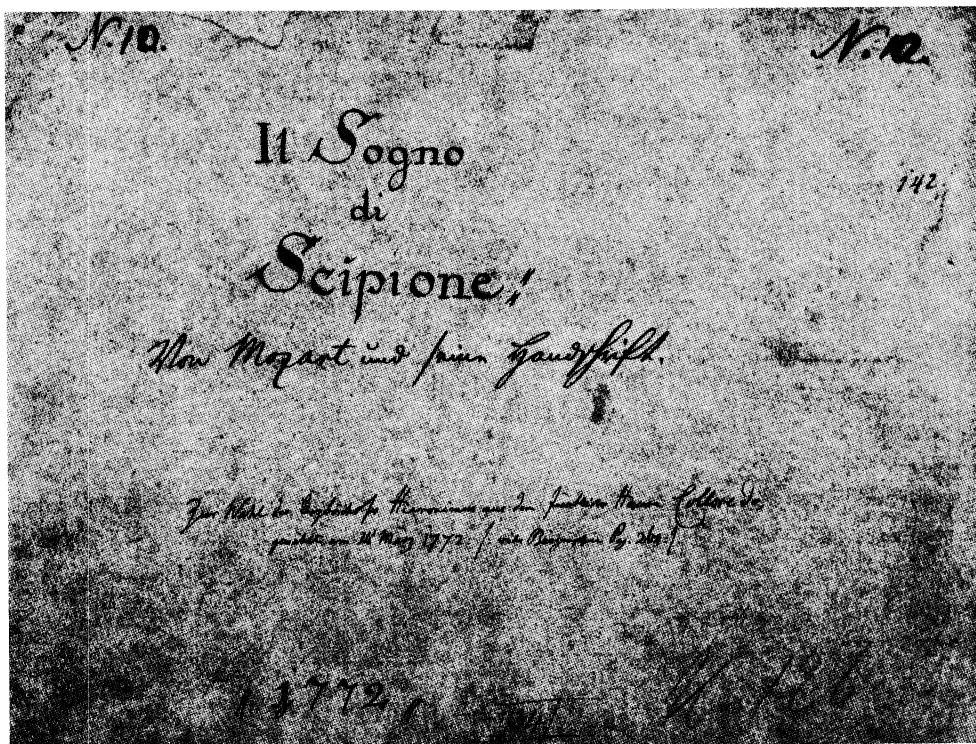 N. 10.
N. 10.
142.
Il Sogno
di
Scipione.
Von Mozart und seine Handschrift.
Zur Wahl des Erzbischofs Hieronimus aus dem Hause Colloredo,
am März 1772 / Biographie Pg.
1772